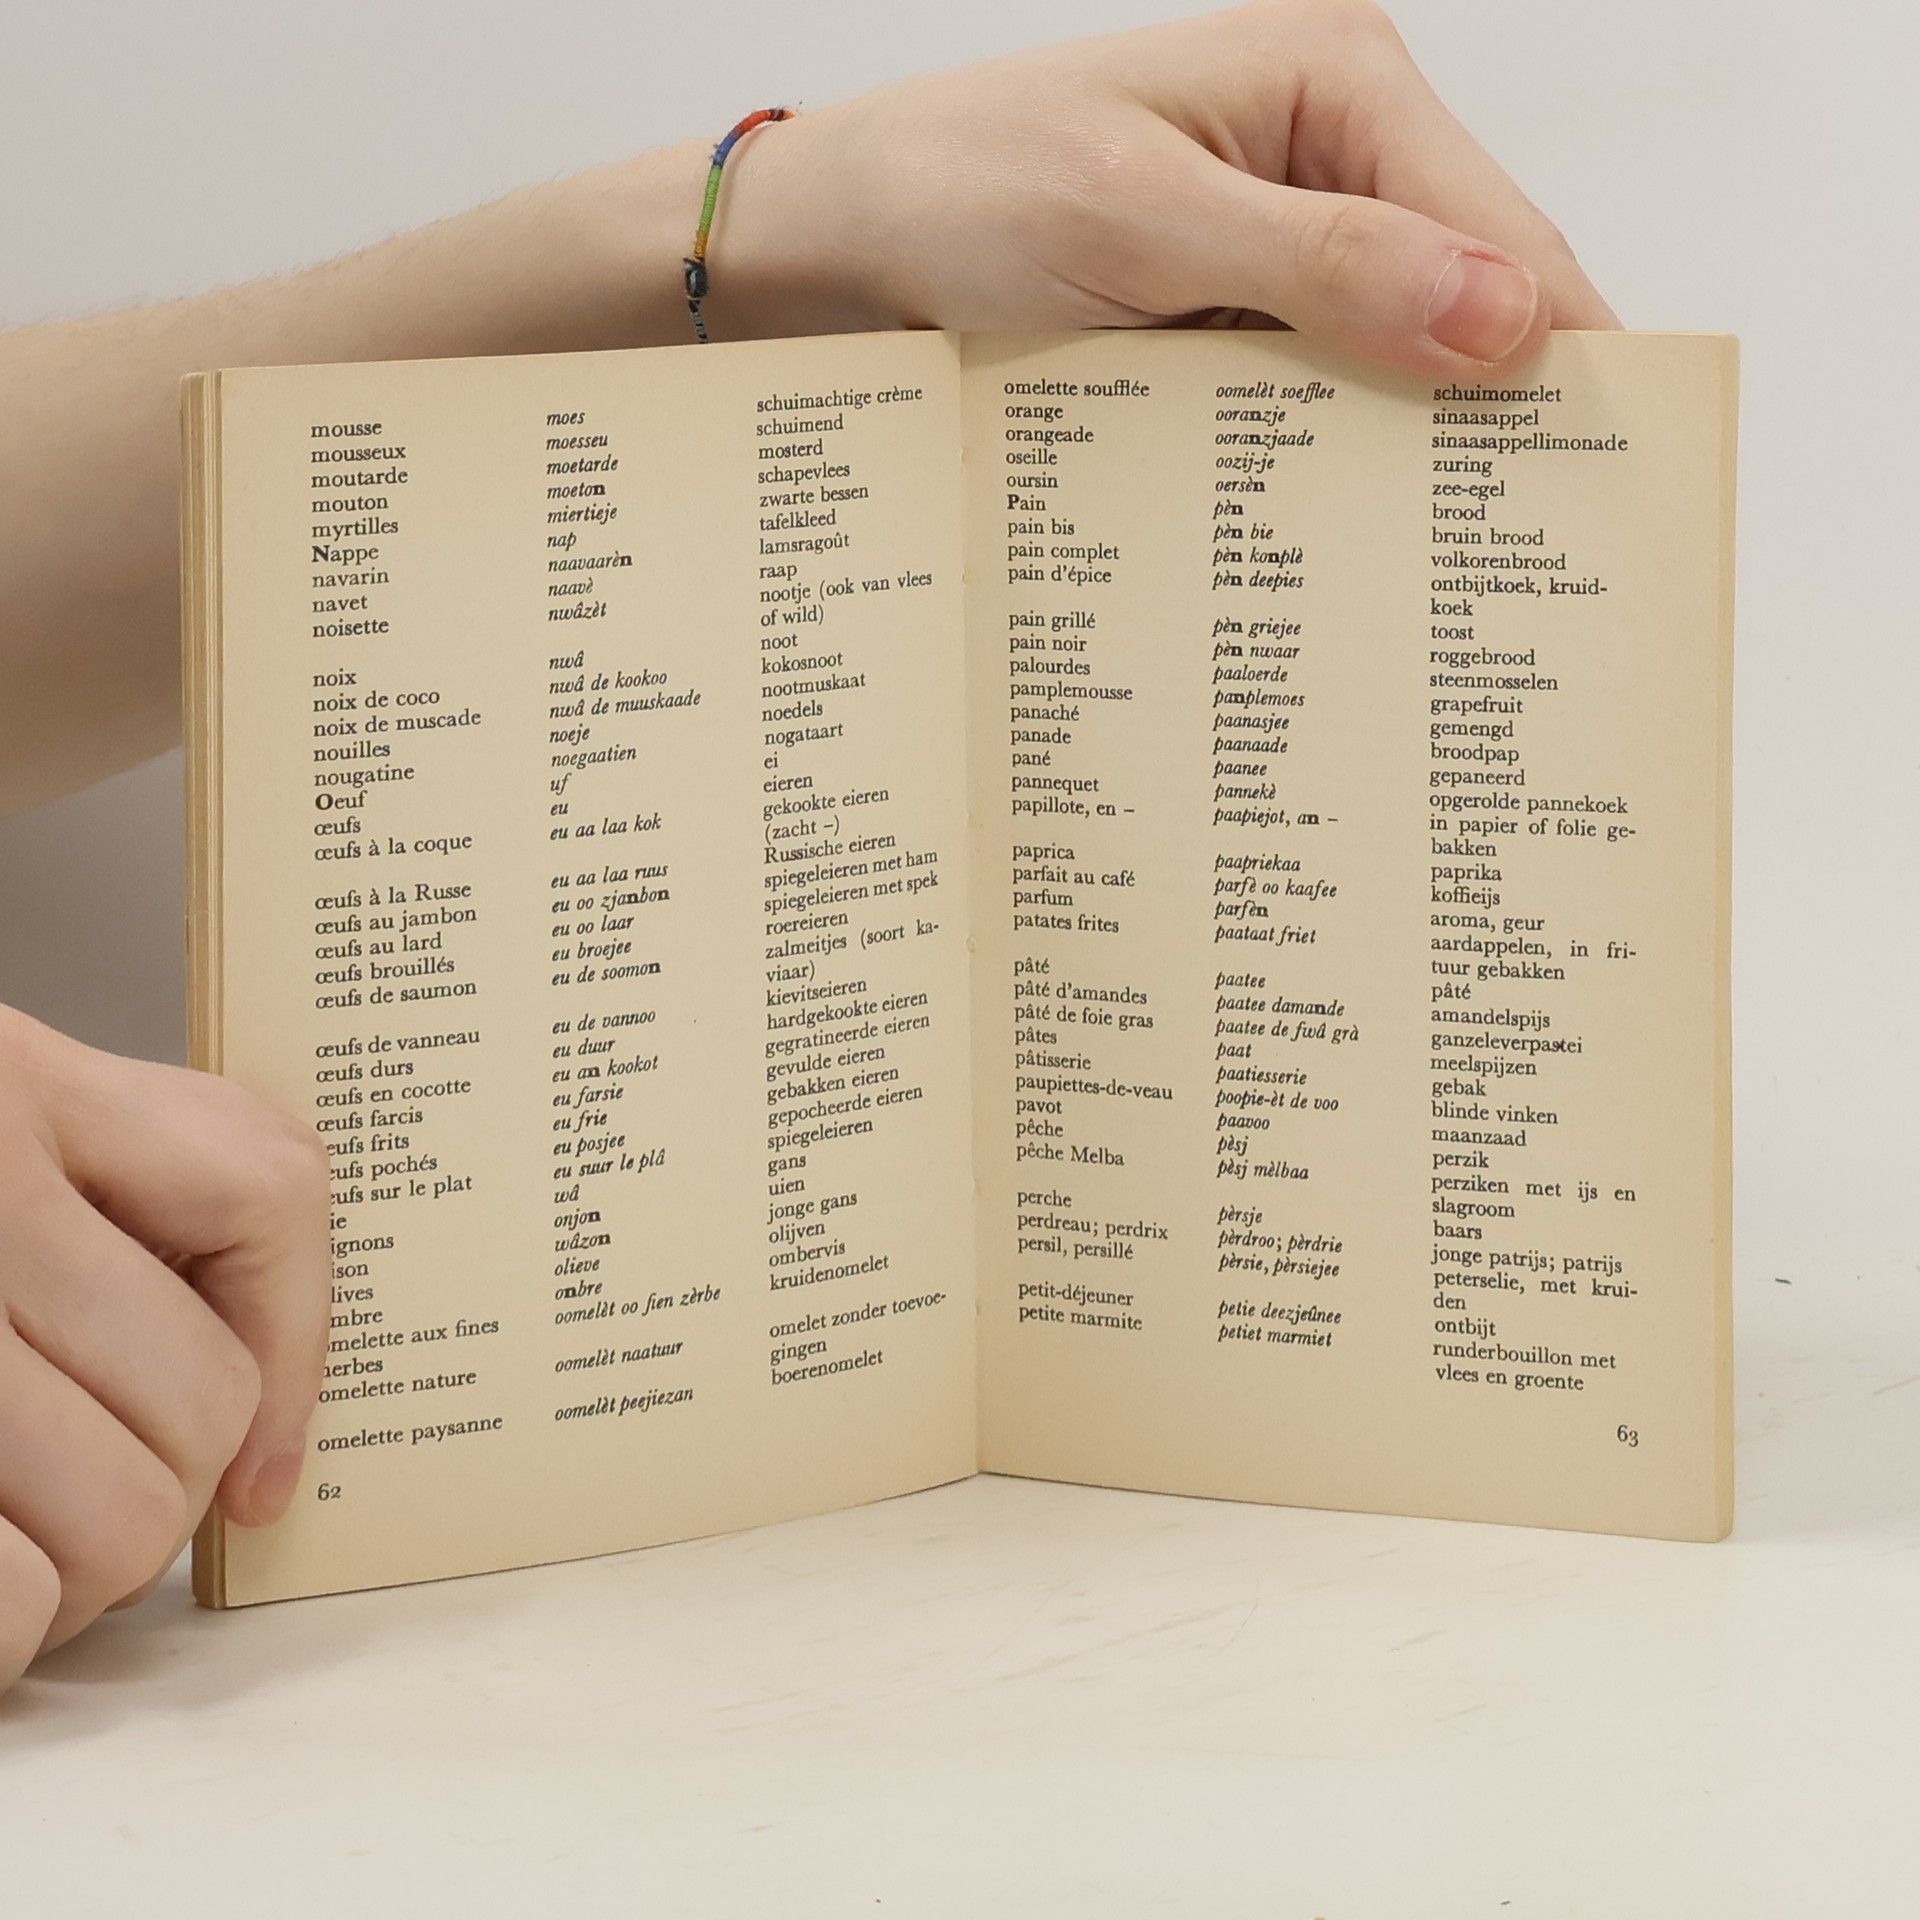 mousse moes schuimachtige crème
mousseux moesseu schuimend
moutarde moetarde mosterd
mouton moeton schapevlees
myrtilles miertieje zwarte bessen
Nappe nap tafelkleed
navarin naavaarèn lamsragoût
navet naavè raap
noisette nwâzèt nootje (ook van vlees
of wild)
noix nwâ noot
noix de coco nwâ de kookoo kokosnoot
noix de muscade nwâ de muuskaade nootmuskaat
nouilles noeje noedels
nougatine noegaatien nogataart
Oeuf uf ei
œufs eu eieren
œufs à la coque eu aa laa kok gekookte eieren
(zacht –)
œufs à la Russe eu aa laa ruus Russische eieren
œufs au jambon eu oo zjanbon spiegeleieren met ham
œufs au lard eu oo laar spiegeleieren met spek
œufs brouillés eu broejee roereieren
œufs de saumon eu de soomon zalmeitjes (soort ka-
viaar)
œufs de vanneau eu de vannoo kievitseieren
œufs durs eu duur hardgekookte eieren
œufs en cocotte eu an kookot gegratineerde eieren
œufs farcis eu farsie gevulde eieren
eufs frits eu frie gebakken eieren
eufs pochés eu posjee gepocheerde eieren
eufs sur le plat eu suur le plâ spiegeleieren
ie wâ gans
ignons onjon uien
ison wâzon jonge gans
lives olieve olijven
mbre onbre ombervis
omelette aux fines oomelèt oo fien zèrbe kruidenomelet
herbes
omelette nature oomelèt naatuur omelet zonder toevoe-
gingen
omelette paysanne oomelèt peejiezan boerenomelet
62
omelette soufflée oomelèt soefflee schuimomelet
orange ooranzje sinaasappel
orangeade ooranzjaade sinaasappellimonade
oseille oozij-je zuring
oursin oersèn zee-egel
Pain pèn brood
pain bis pèn bie bruin brood
pain complet pèn konplè volkorenbrood
pain d'épice pèn deepies ontbijtkoek, kruid-
koek
pain grillé pèn griejee toost
pain noir pèn nwaar roggebrood
palourdes paaloerde steenmosselen
pamplemousse panplemoes grapefruit
panaché paanasjee gemengd
panade paanaade broodpap
pané paanee gepaneerd
pannequet pannekè opgerolde pannekoek
papillote, en – paapiejot, an – in papier of folie ge-
bakken
paprica paapriekaa paprika
parfait au café parfè oo kaafee koffieijs
parfum parfèn aroma, geur
patates frites paataat friet aardappelen, in fri-
tuur gebakken
pâté paatee pâté
pâté d'amandes paatee damande amandelspijs
pâté de foie gras paatee de fwâ grà ganzeleverpastei
pâtes paat meelspijzen
pâtisserie paatiesserie gebak
paupiettes-de-veau poopie-èt de voo blinde vinken
pavot paavoo maanzaad
pêche pèsj perzik
pêche Melba pèsj mèlbaa perziken met ijs en
slagroom
perche pèrsje baars
perdreau; perdrix pèrdroo; pèrdrie jonge patrijs; patrijs
persil, persillé pèrsie, pèrsiejee peterselie, met krui-
den
petit-déjeuner petie deezjeûnee ontbijt
petite marmite petiet marmiet runderbouillon met
vlees en groente
63